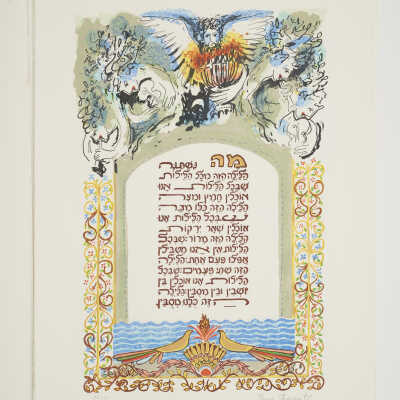 מה נשתנה
הלילה הזה מכל הלילות
שבכל הלילות אנו
אוכלין חמץ ומצה
הלילה הזה כלו מצה
שבכל הלילות אנו
אוכלין שאר ירקות
הלילה הזה מרור שבכל
הלילות אין אנו מטבילין
אפילו פעם אחת הלילה
הזה שתי פעמים שבכל
הלילות אנו אוכלין בין
יושבין ובין מסבין הלילה
הזה כלנו מסבין